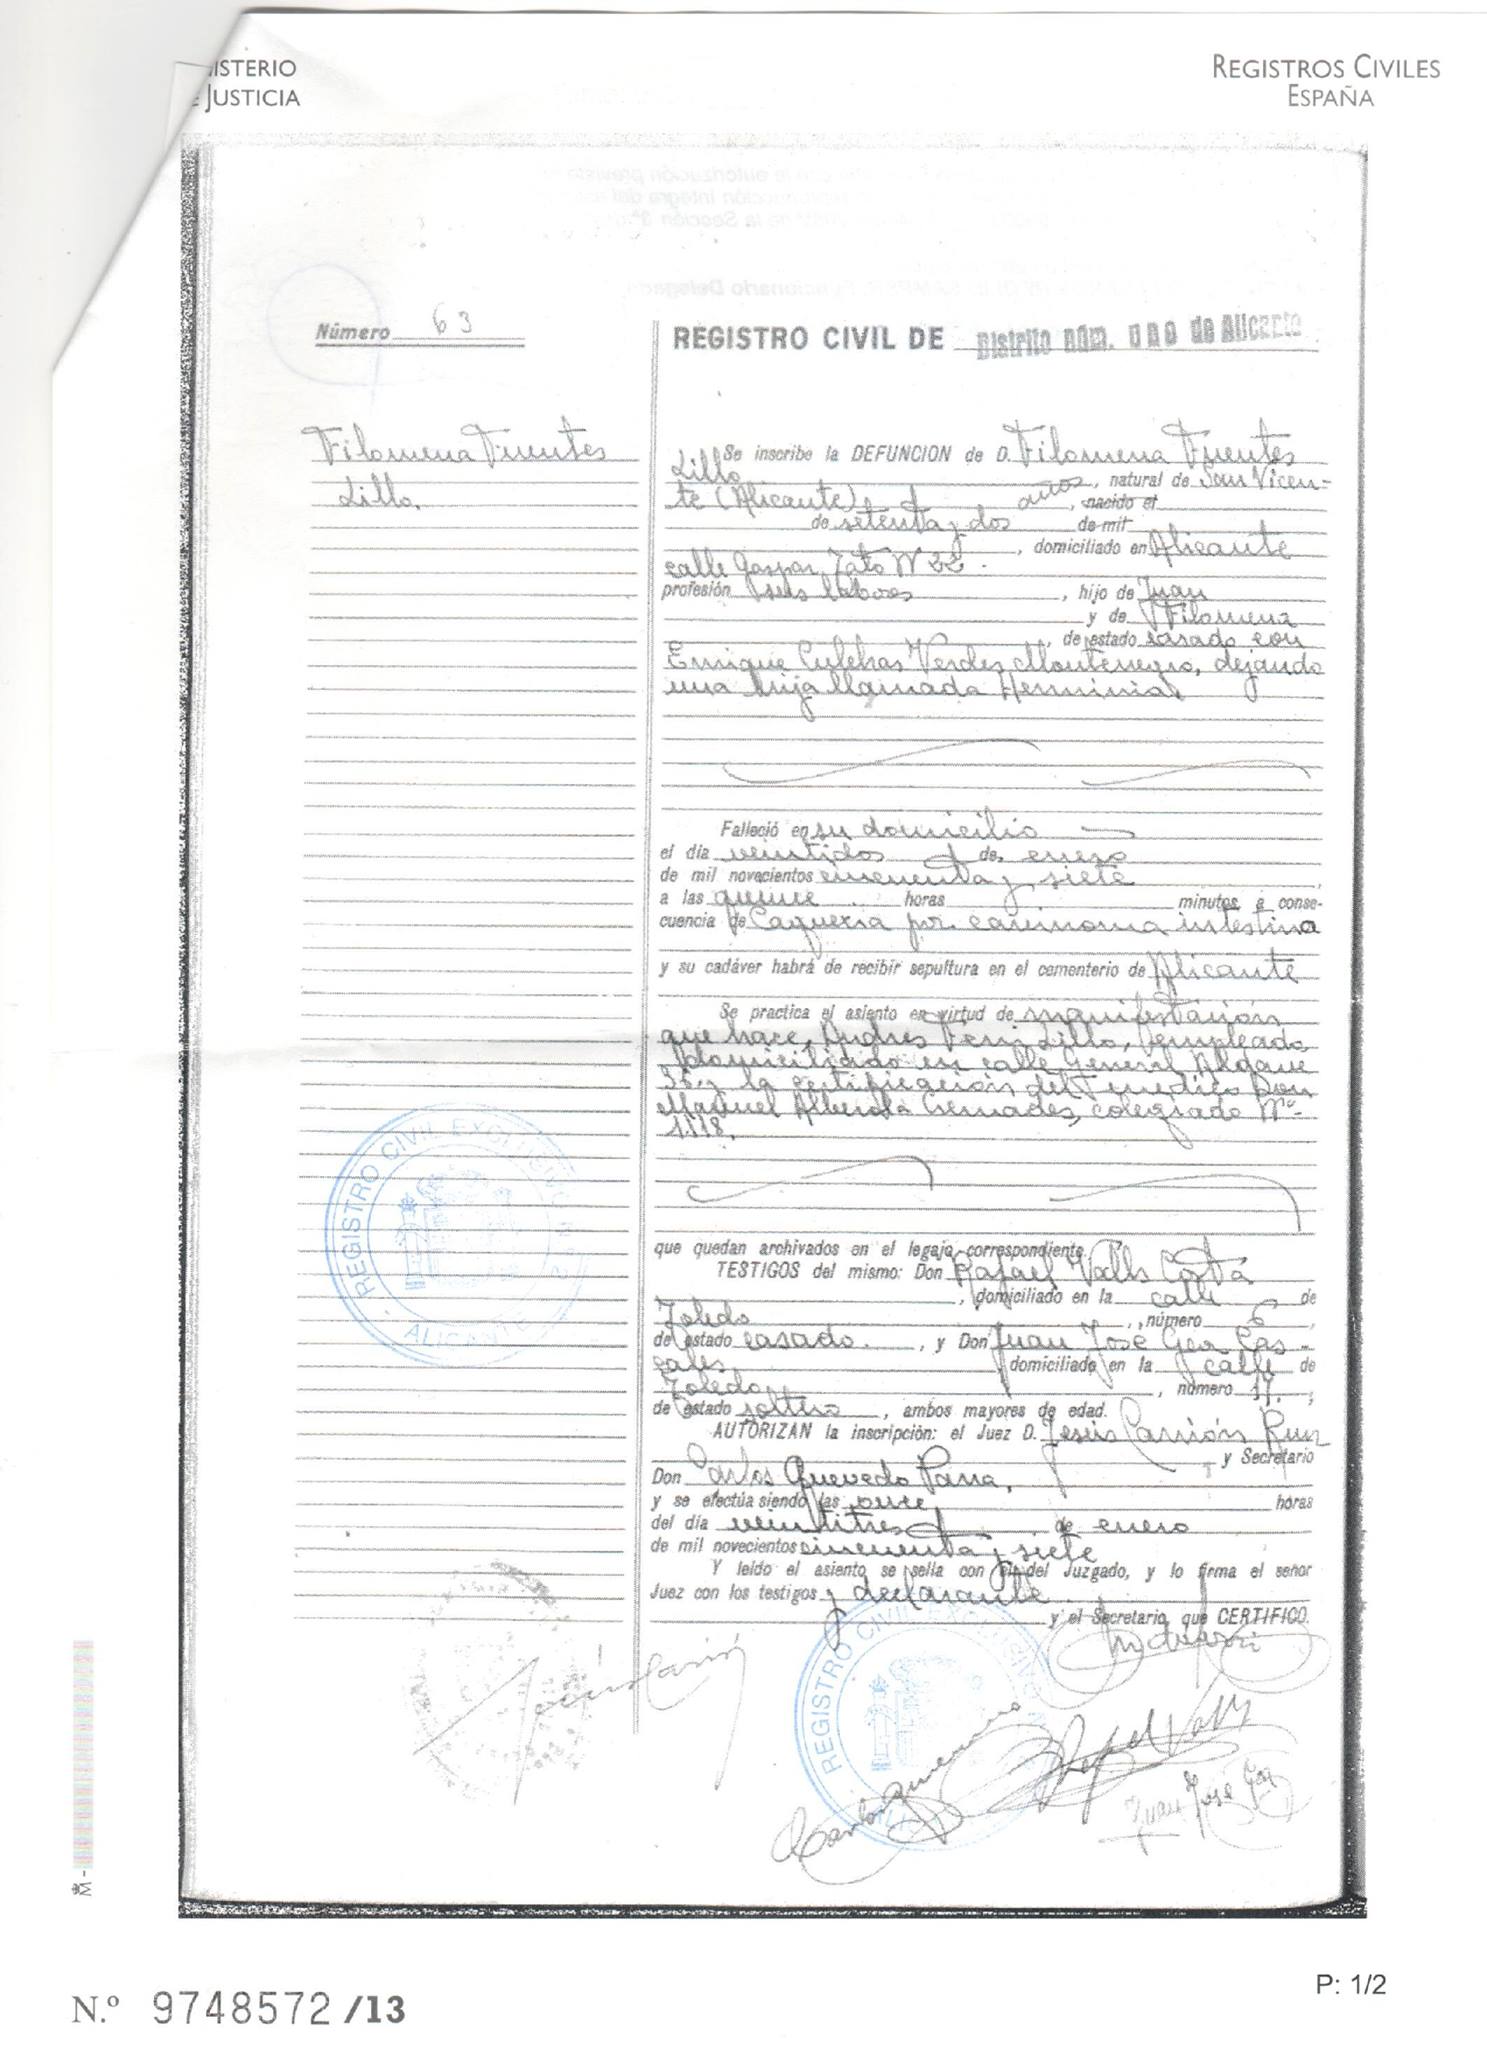 ISTERIO
E JUSTICIA
REGISTROS CIVILES
ESPAÑA
Número 63
REGISTRO CIVIL DE Distrito núm. uno de Alicante
Filomena Fuentes
Lillo.
Se inscribe la DEFUNCION de D. Filomena Fuentes
Lillo, natural de San Vicen-
te (Alicante), nacido el
de setenta y dos años de mil
, domiciliado en Alicante
calle Gaspar Tato Nº 22.
profesión sus labores, hijo de Juan
y de Filomena
, de estado casado con
Enrique Culebras Verdes Montenegro, dejando
una hija llamada Herminia
Falleció en su domicilio
el día veintidos de enero
de mil novecientos cincuenta y siete,
a las quince horas minutos a conse-
cuencia de Caquexia por carcinoma intestina
y su cadáver habrá de recibir sepultura en el cementerio de Alicante
Se practica el asiento en virtud de manifestación
que hace Andres Ferri Lillo, empleado
domiciliado en calle General Aldave
36 y la certificación del médico Don
Manuel Alberola Cremades, colegiado Nº
1118.
que quedan archivados en el legajo correspondiente.
TESTIGOS del mismo: Don Rafael Valls Cortá
, domiciliado en la calle de
Toledo, número 6,
de estado casado, y Don Juan José Gea Cas-
cales, domiciliado en la calle de
Toledo, número 17,
de estado soltero, ambos mayores de edad.
AUTORIZAN la inscripción: el Juez D. Jesús Carrión Ruiz
y Secretario
Don Carlos Quevedo Parra,
y se efectúa siendo las once horas
del día veintitres de enero
de mil novecientos cincuenta y siete
Y leído el asiento se sella con el del Juzgado, y lo firma el señor
Juez con los testigos y declarante
y el Secretario, que CERTIFICO.
REGISTRO CIVIL EXCLUSIVO Nº 2
ALICANTE
REGISTRO CIVIL EXCLUSIVO N
Jesús Carrión
Rafael Valls
Juan José Gea
M-
P: 1/2
N.º 9748572/13